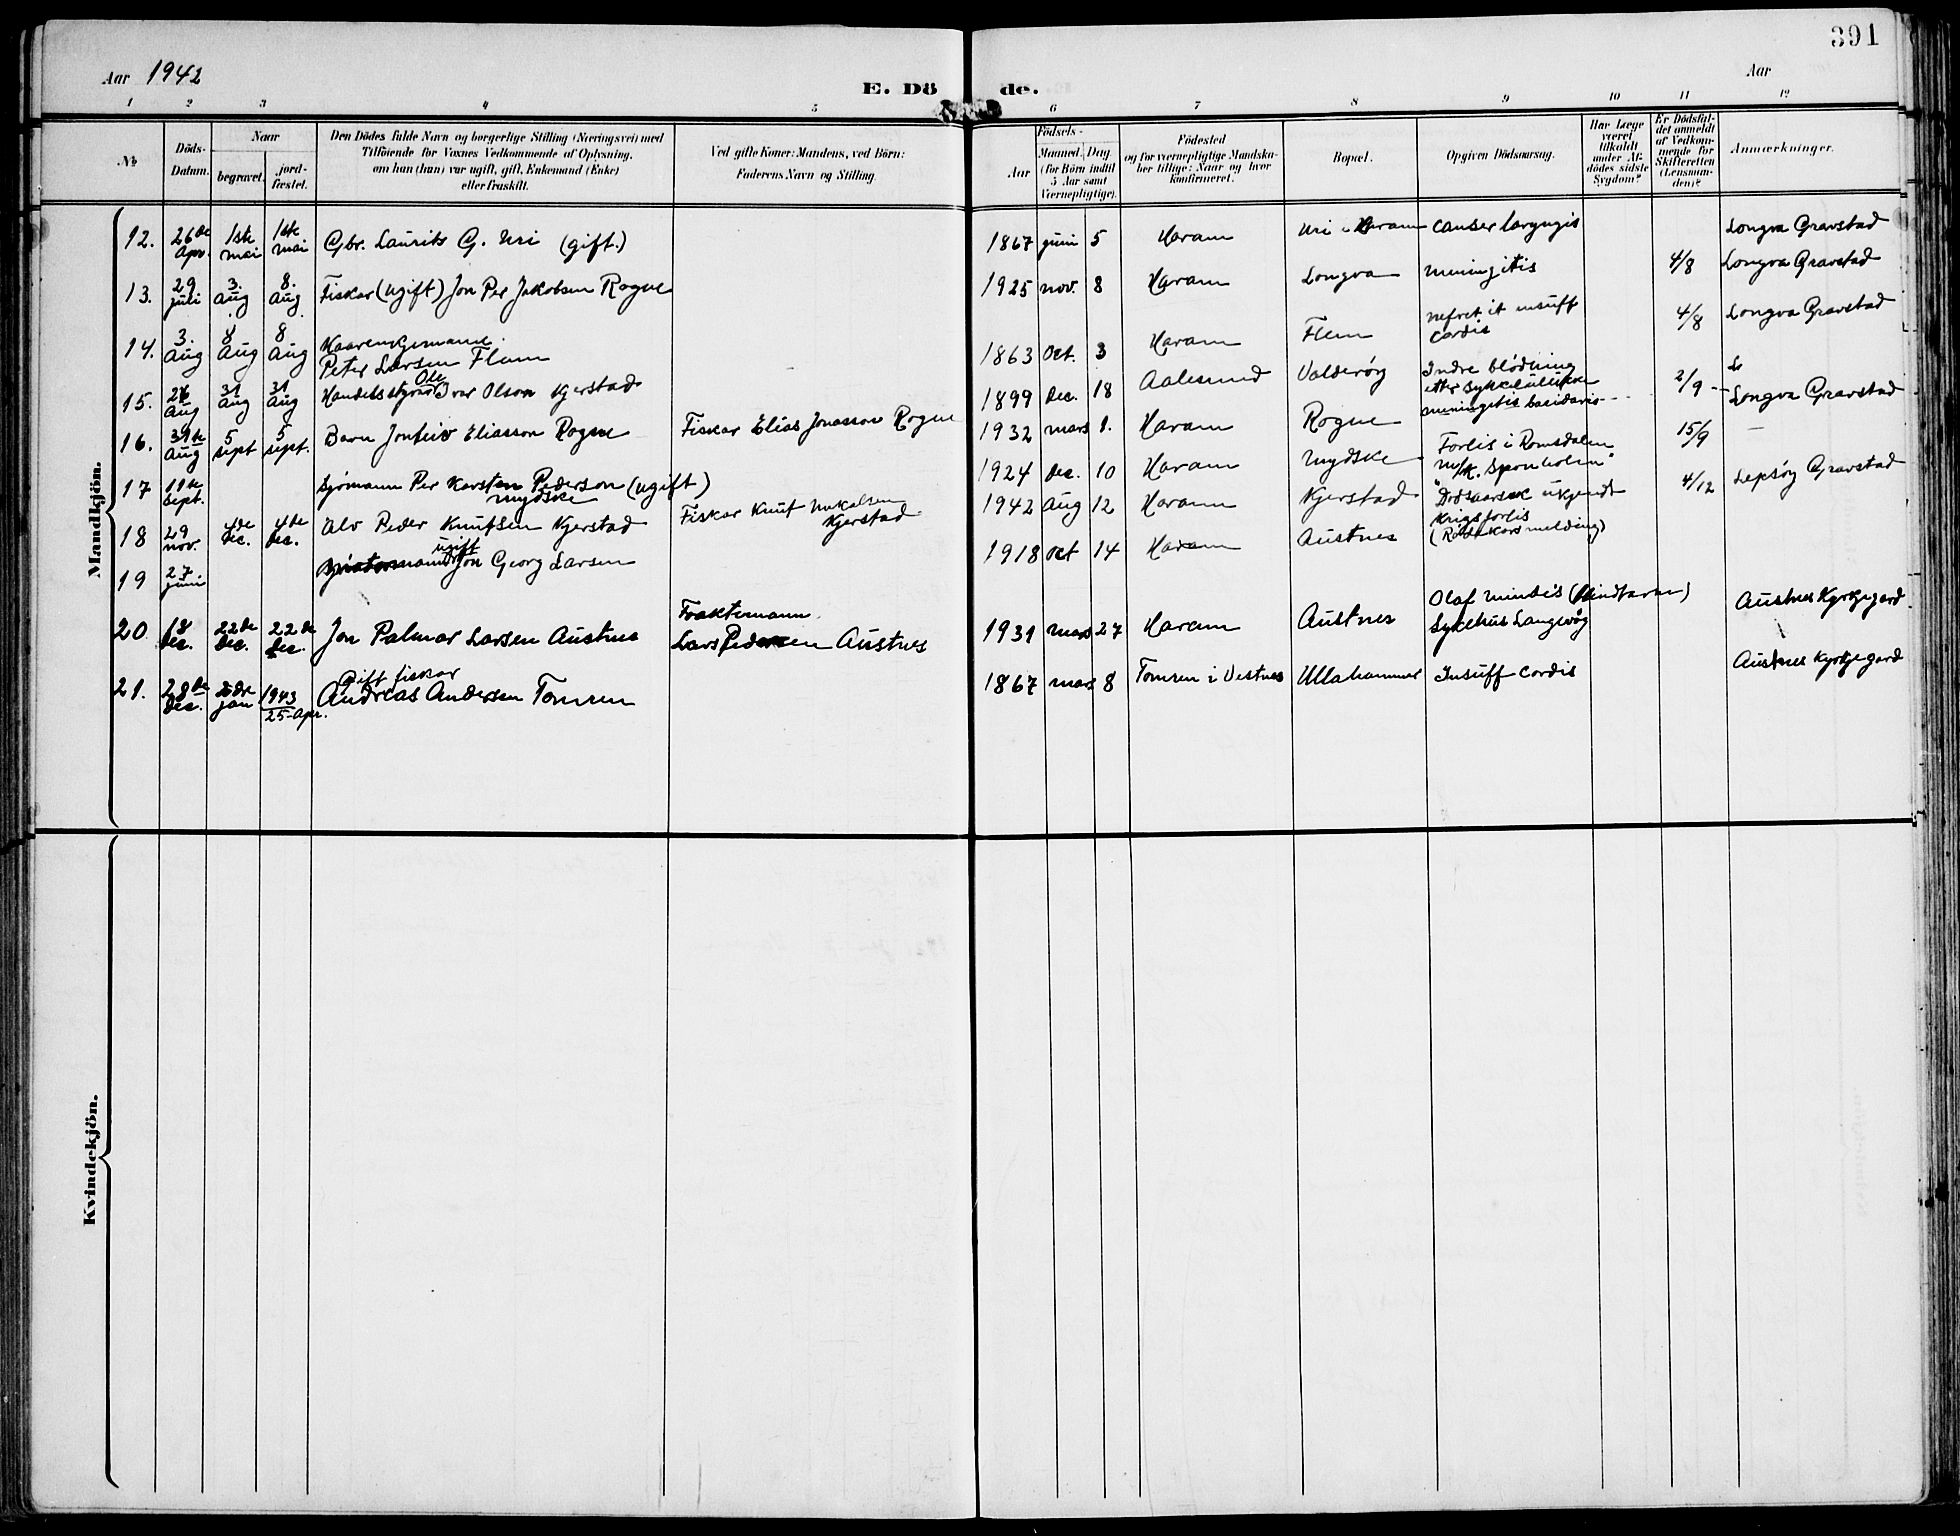 391
Aar 1942
E. Dö de.
Aar
1 2 3 4 5 6 7 8 9 10 11 12
No
Döds-
Datum.
Naar
begravet.
jord-
fæstet.
Den Dödes fulde Navn og borgerlige Stilling (Næringsvei) med
Tilföiende for Voxnes Vedkommende af Oplysning,
om han (hun) var ugift, gift, Enkemand (Enke)
eller fraskilt.
Ved gifte Koner: Mandens, ved Börn:
Faderens Navn og Stilling.
Födsels-
Aar
Maaned. Dag
(for Börn indtil
5 Aar samt
Værnepligtige).
Födested
og for værnepligtige Mandska-
ber tillige: Naar og hvor
konfirmeret.
Bopæl.
Opgiven Dödsaarsag.
Har Læge
været
tilkaldt
under Af-
dödes sidste
Sygdom?
Er Dödsfal-
det anmeldt
af Vedkom-
mende for
Skifteretten
(Lensman-
den)?
Anmærkninger.
Mandkjön.
12. 26de Apr. 1ste mai 1ste mai Gbr. Laurits G. Uri (gift.) 1867 juni 5 Haram Uri i Haram canser laryngis Longva Gravstad
13. 29 juli 3. aug 8. aug Fiskar (ugift) Jon Per Jakobsen Rogne 1925 nov. 8 Haram Longva meningitis 4/8 Longva Gravstad
14. 3. Aug 8 Aug 8 Aug
Peter Larsen Flem 1863 Oct. 3 Haram Flem nefret it insuff
cordis 4/8 Longva Gravstad
15. 26 Aug 31 Aug 31 Aug Handelsstyrar Ole Ivar Olson Kjerstad 1899 Dec. 18 Aalesund Valderöy Indre blödning
etter sykelulukke 2/9 Longva Gravstad
16. 31te Aug 5 sept 5 sept. Barn Eliasson Rogne Fiskar Elias Jonasson Rogne 1932 mars 1. Haram Rogne meningitis 15/9 —
17 11te Sept. Sjömann Per Karsten Pederson (ugift)
mydske 1924 Dec. 10 Haram mydske Forlis i Romsdalen
m/k. "Sponholm"
18 29 nov. 4de Dec. 4de Dec. Alv Peder Knutsen Kjerstad Fiskar Knut
Kjerstad 1942 Aug 12 Haram Kjerstad Dødsaarsak ukjendt 4/12 Lepsöy Gravstad
19 27 juni ugift
Jon Georg Larsen 1918 Oct 14 Haram Austnes Krigsforlis
(Röde Kors melding)
20 18 Dec. 22de Dec. 22de Dec. Jon Palmar Larsen Austnes Fraktemann
Lars Pedersen Austnes 1931 mars 27 Haram Austnes Olaf minde's
Sykehus Langevåg Austnes Kyrkjegard
21. 28de Dec. 2dre jan 1943
25-Apr. Gift fiskar
Andreas Andersen Tomren 1867 mars 8 Tomren i Vestnes Ullahammer Insuff cordis Austnes Kyrkjegard
Kvindekjön.